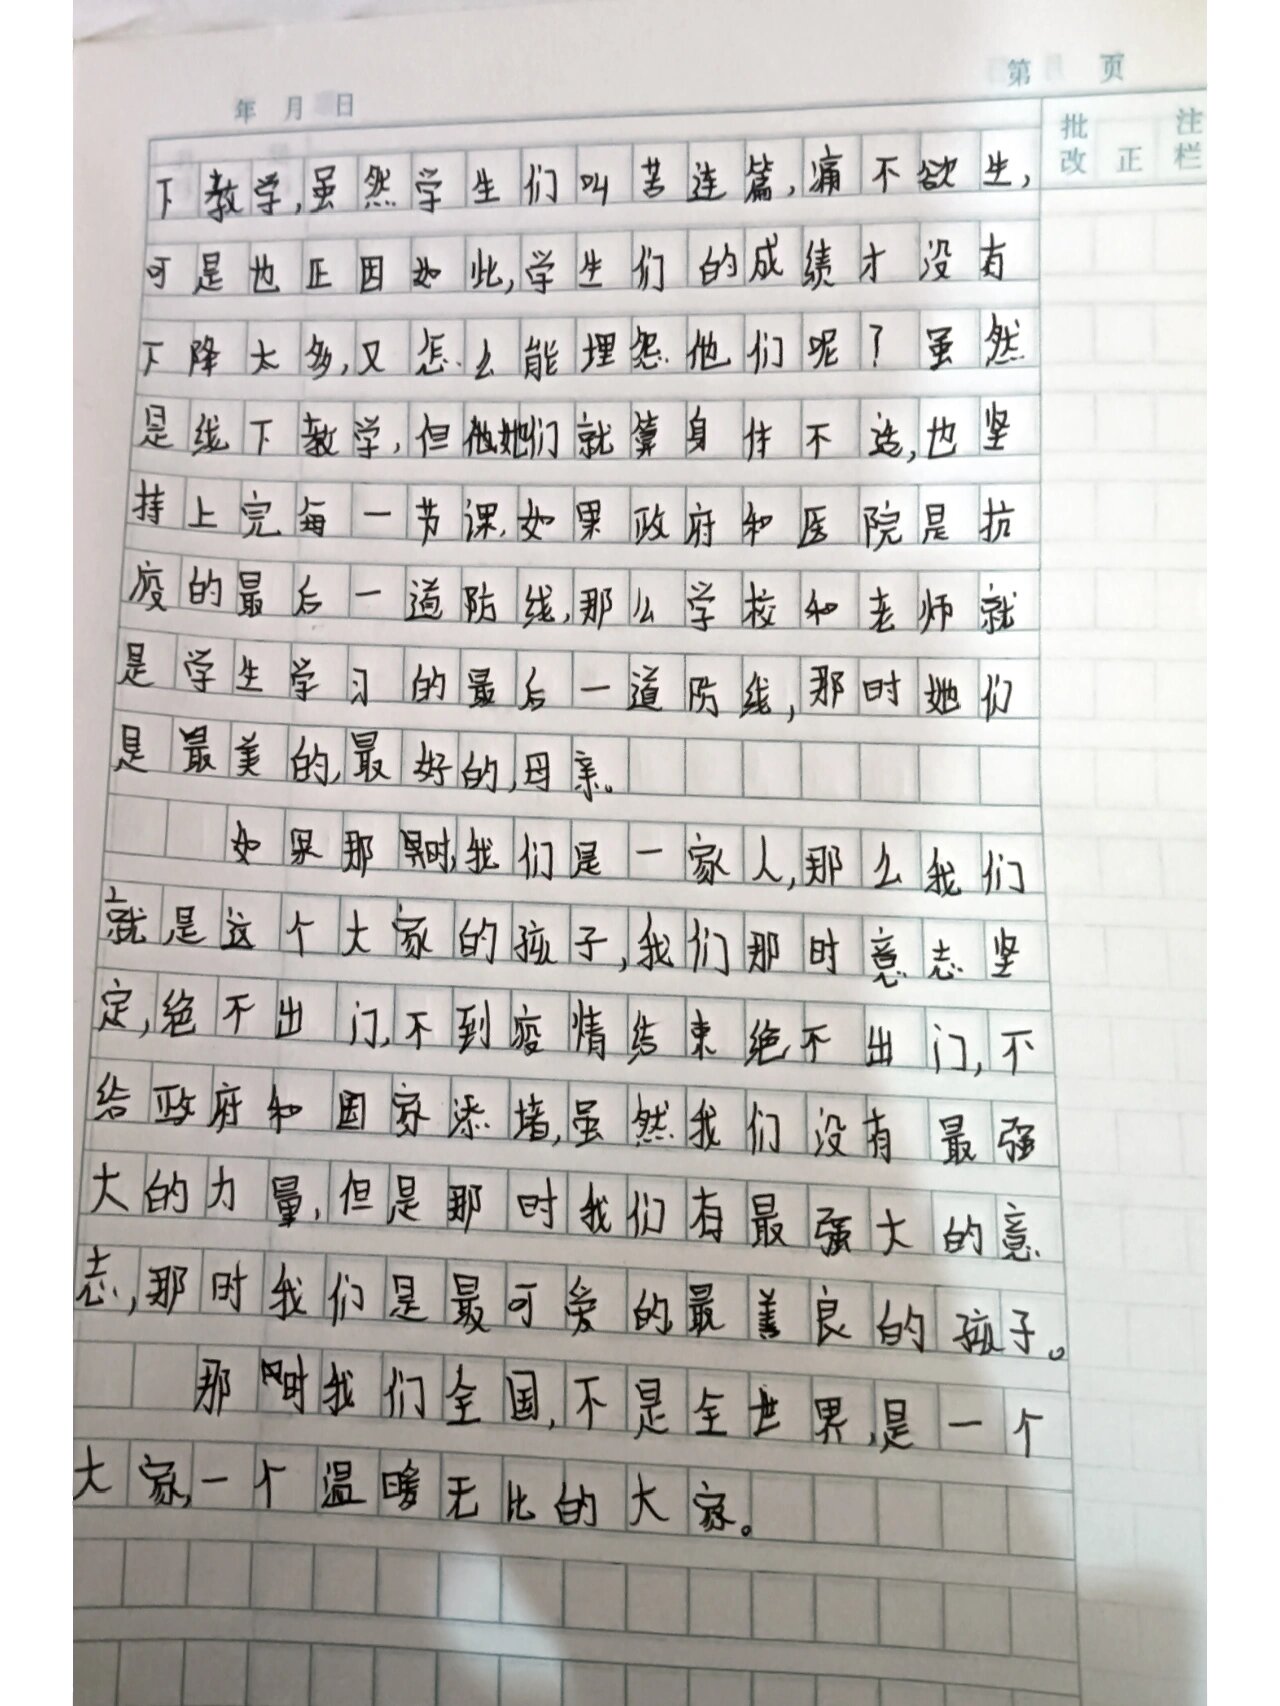 第 页
年 月 日
批改 正 注栏
下教学,虽然学生们叫苦连篇,痛不欲生,
可是也正因如此,学生们的成绩才没有
下降太多,又怎么能埋怨他们呢?虽然
是线下教学,但他她们就算身体不适,也坚
持上完每一节课,如果政府和医院是抗
疫的最后一道防线,那么学校和老师就
是学生学习的最后一道防线,那时她们
是最美的,最好的,母亲。
如果那时,我们是一家人,那么我们
就是这个大家的孩子,我们那时意志坚
定,绝不出门,不到疫情结束绝不出门,不
给政府和国家添堵,虽然我们没有最强
大的力量,但是那时我们有最强大的意
志,那时我们是最可爱的,最善良的孩子。
那时我们全国,不是全世界,是一个
大家,一个温暖无比的大家。